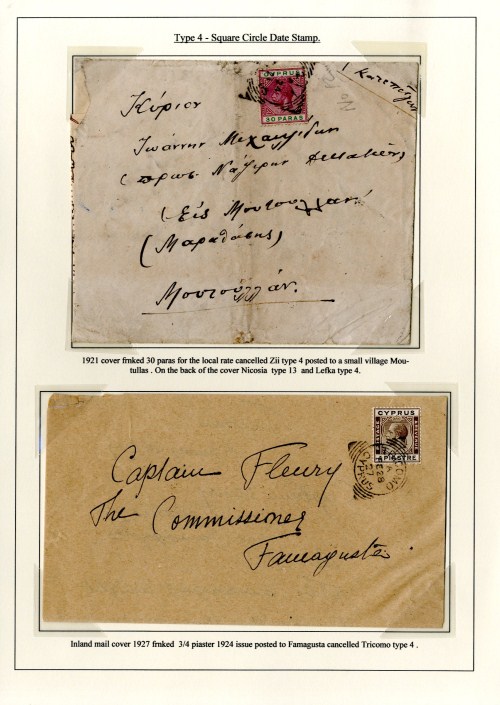 Type 4 - Square Circle Date Stamp.
CYPRUS
30 PARAS
Κύριον
Ἰωάννην Μιχαηλίδην
(πρὸς
(Εἰς Μουτουλλάν
(Μαραθάσης)
Μουτουλλάν.
1921 cover frnked 30 paras for the local rate cancelled Zii type 4 posted to a small village Mou-
tullas . On the back of the cover Nicosia type 13 and Lefka type 4.
CYPRUS
POSTAGE
REVENUE
PIASTRE
Captain Fleury
The Commissioner
Famagusta
Inland mail cover 1927 frnked 3/4 piaster 1924 issue posted to Famagusta cancelled Tricomo type 4 .